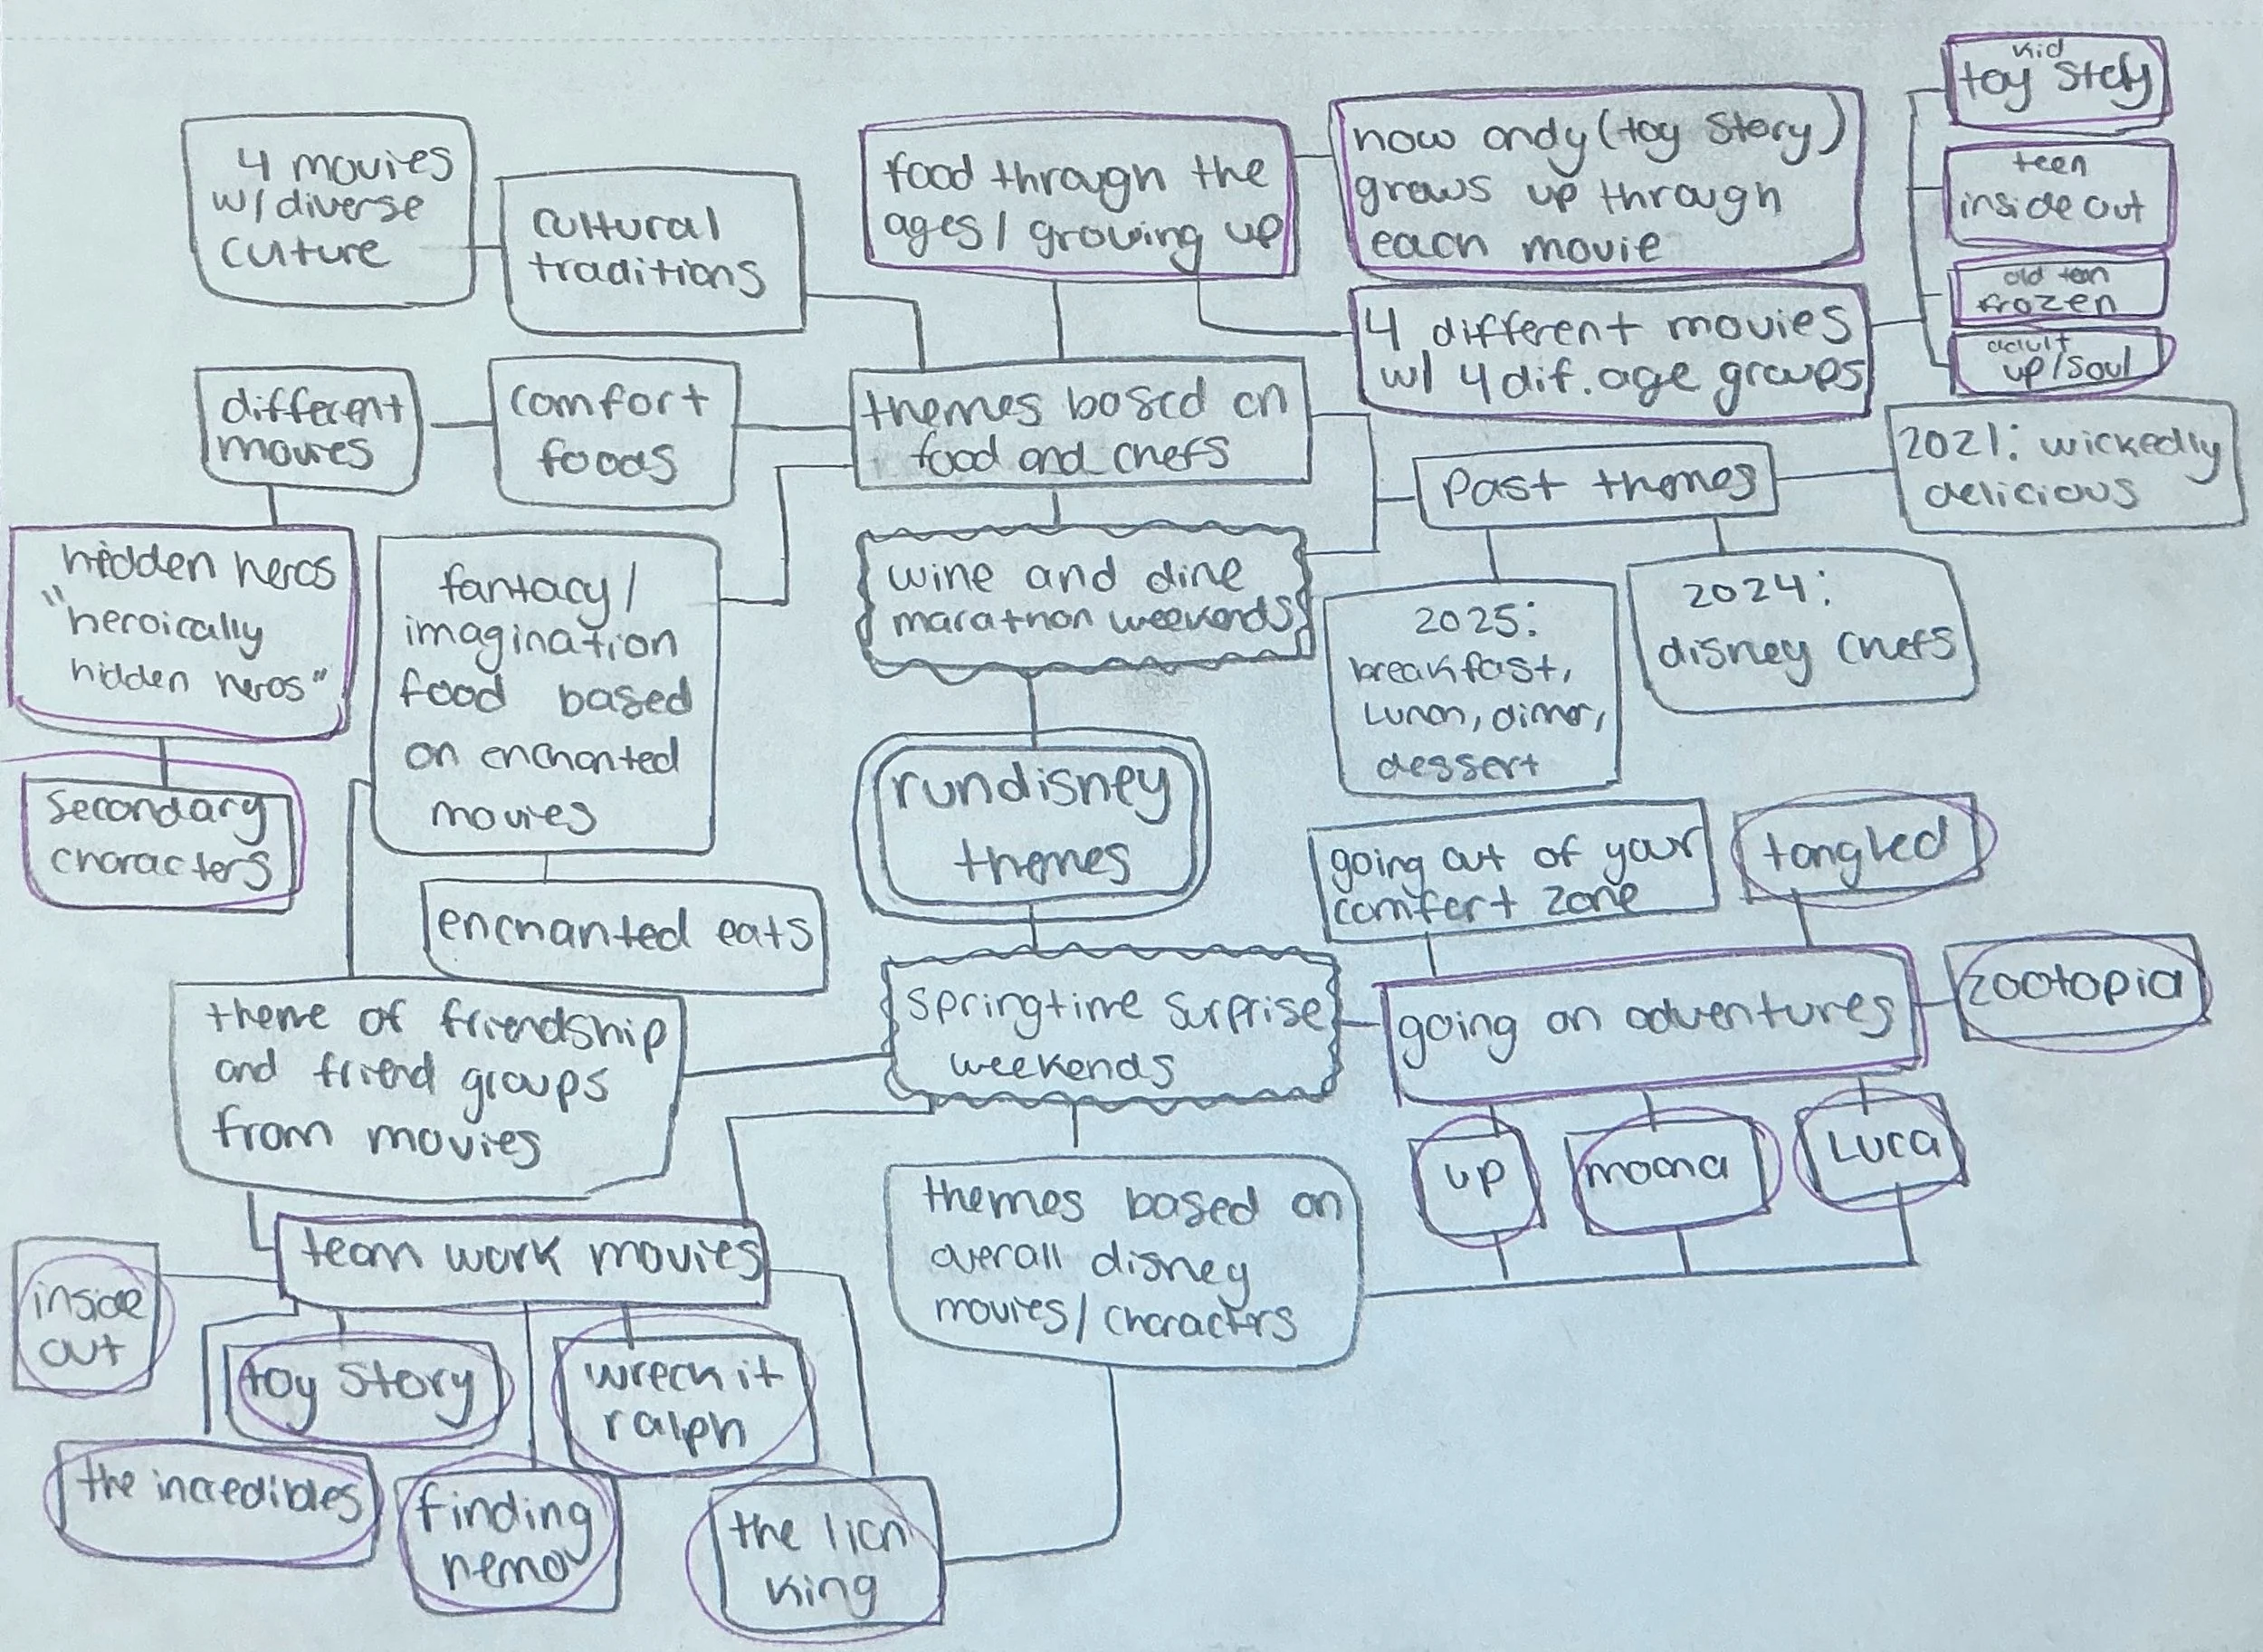 4 movies
w/ diverse
culture
cultural
traditions
food through the
ages / growing up
how andy (toy story)
grows up through
each movie
4 different movies
w/ 4 dif. age groups
kid
toy story
teen
inside out
old teen
frozen
adult
up/soul
different
movies
comfort
foods
themes based on
food and chefs
past themes
2021: wickedly
delicious
2025:
breakfast,
lunch, dinner,
dessert
2024:
disney chefs
hidden heros
"heroically
hidden heros"
secondary
characters
fantacy/
imagination
food based
on enchanted
movies
enchanted eats
wine and dine
marathon weekends
rundisney
themes
springtime surprise
weekends
going out of your
comfort zone
tangled
going on adventures
zootopia
up
moana
luca
theme of friendship
and friend groups
from movies
themes based on
overall disney
movies/ characters
team work movies
inside
out
toy story
wreck it
ralph
the incredibles
finding
nemo
the lion
king